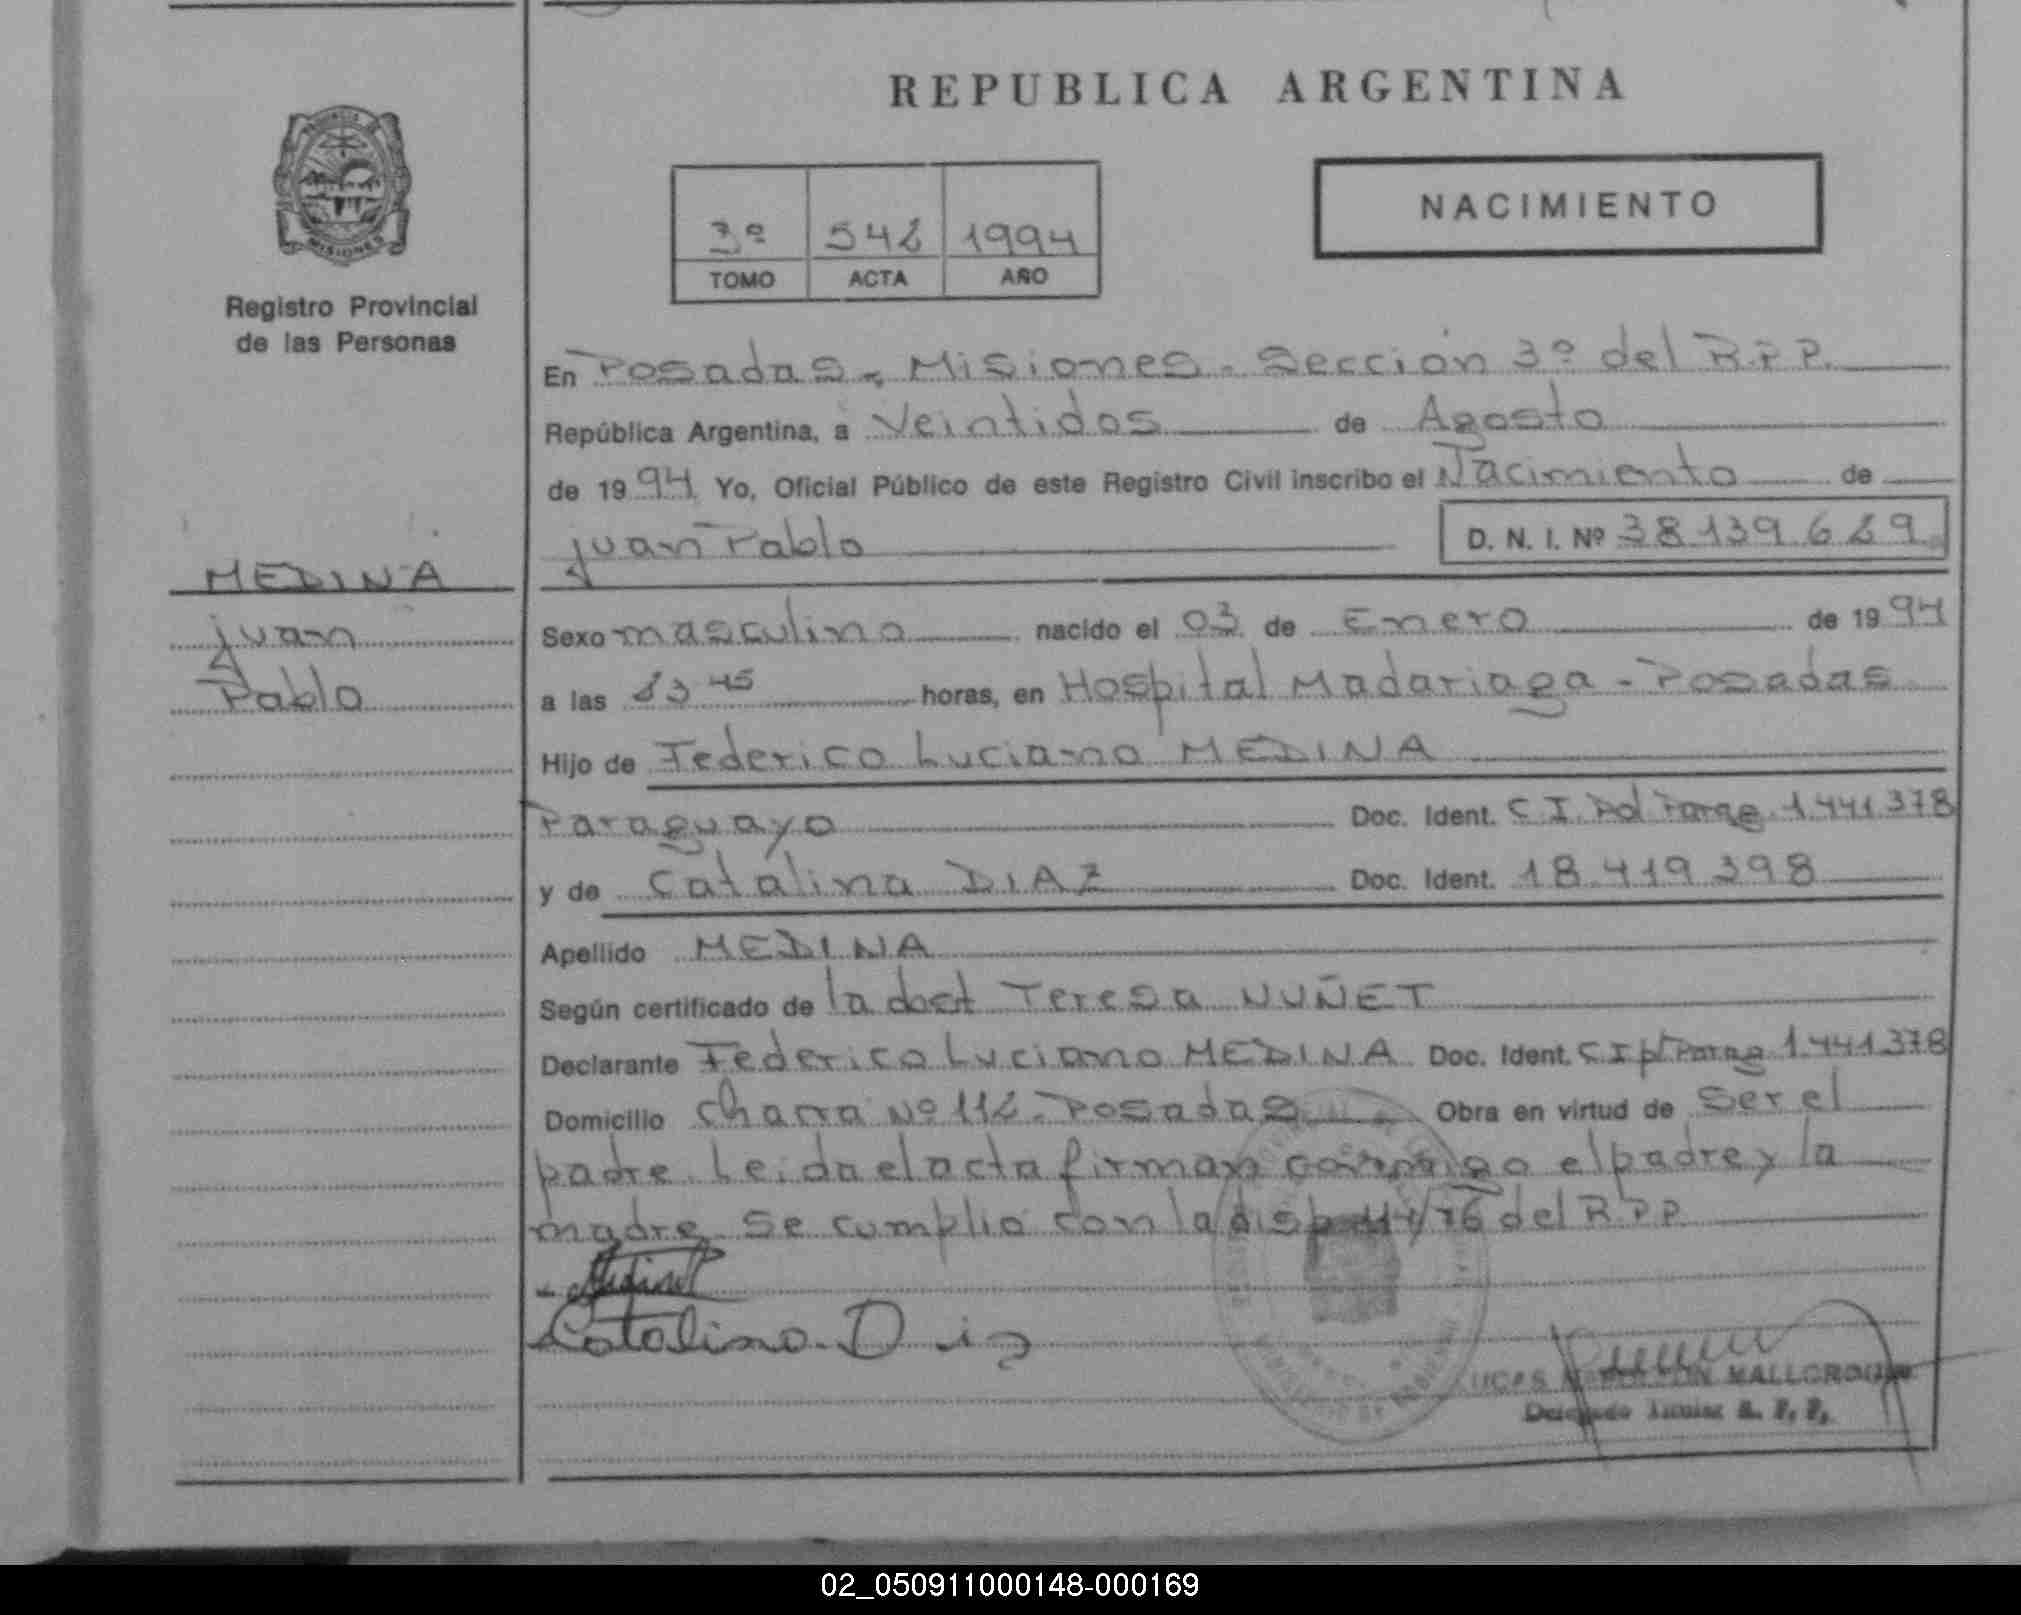 REPUBLICA ARGENTINA
NACIMIENTO
3º 542 1994
TOMO ACTA AÑO
MISIONES
Registro Provincial
de las Personas
En Posadas - Misiones - Sección 3º del R.P.P.
República Argentina, a Veintidos de Agosto
de 1994 Yo, Oficial Público de este Registro Civil inscribo el Nacimiento de
Juan Pablo D. N. I. Nº 38139629
MEDINA
Juan
Pablo
Sexo masculino nacido el 03 de Enero de 1994
a las 23 45 horas, en Hospital Madariaga - Posadas
Hijo de Federico Luciano MEDINA
Paraguayo Doc. Ident. C I. Pol Parag. 1.441.378
y de Catalina DIAZ Doc. Ident. 18.419.398
Apellido MEDINA
Según certificado de la obst Teresa NUÑET
Declarante Federico Luciano MEDINA Doc. Ident. C I p/ Parag 1.441.378
Domicilio Chacra Nº 112 - Posadas Obra en virtud de Ser el
padre. Leida el acta firman conmigo el padre y la
madre. Se cumplio con la disp /76 del R.P.P.
Medina
Catalina Diz
MALLORQUIN
Delegado Titular R. P. P.
02_050911000148-000169